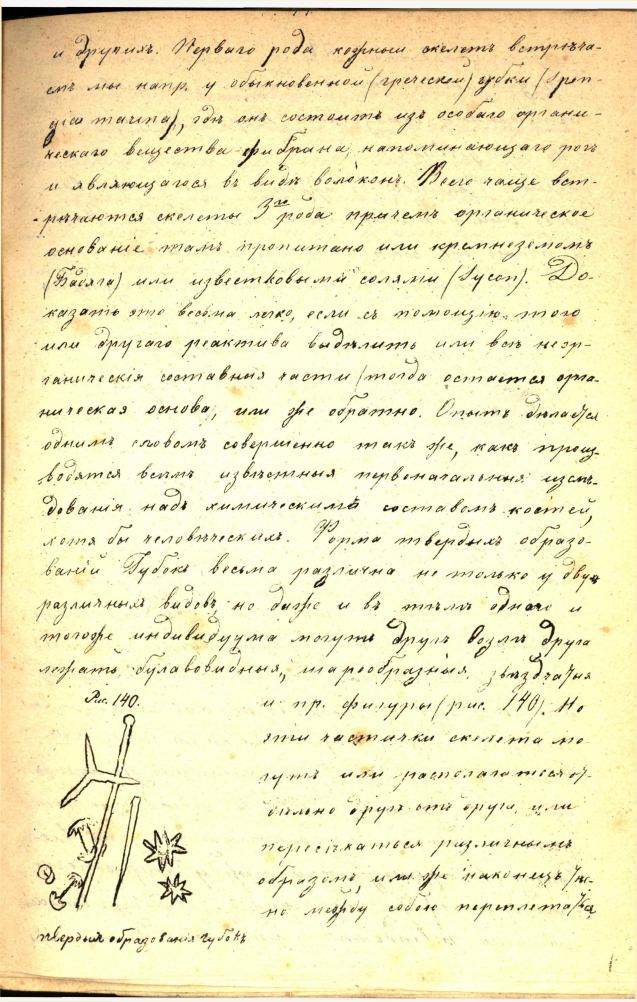 и другихъ. Перваго рода кожный скелетъ встрѣча-
емъ мы напр. у обыкновенной (греческой) губки (Spon-
gia marina), гдѣ онъ состоитъ изъ особаго органи-
ческаго вещества фибрина, напоминающаго рогъ
и являющагося въ видѣ волоконъ. Всего чаще вст-
рѣчаются скелеты 3го рода причемъ органическое
основаніе тамъ пропитано или кремнеземомъ
(Бадяга) или известковыми солями (Sycon). До-
казать это весьма легко, если съ помощію того
или другаго реактива выдѣлить или всѣ неор-
ганическія составныя части (тогда остается орга-
ническая основа, или же обратно. Опытъ дѣлается
однимъ словомъ совершенно такъ же, какъ произ-
водятся всѣмъ извѣстныя первоначальныя изслѣ-
дованія надъ химическимъ составомъ костей,
хотя бы человѣческихъ. Форма твердыхъ образо-
ваній Губокъ весьма различна не только у двухъ
различныхъ видовъ, но даже и въ тѣлѣ одного и
тогоже индивидуума могутъ другъ возлѣ друга
лежать булавовидныя, шарообразныя, звѣздчатыя
Рис. 140.
и пр. фигуры (рис. 140). Но
эти частички скелета мо-
гутъ или располагаться от-
дѣльно другъ отъ друга, или
пересѣкаться различнымъ
образомъ, или же наконецъ
но между собою переплетаться,
твердыя образованія губокъ